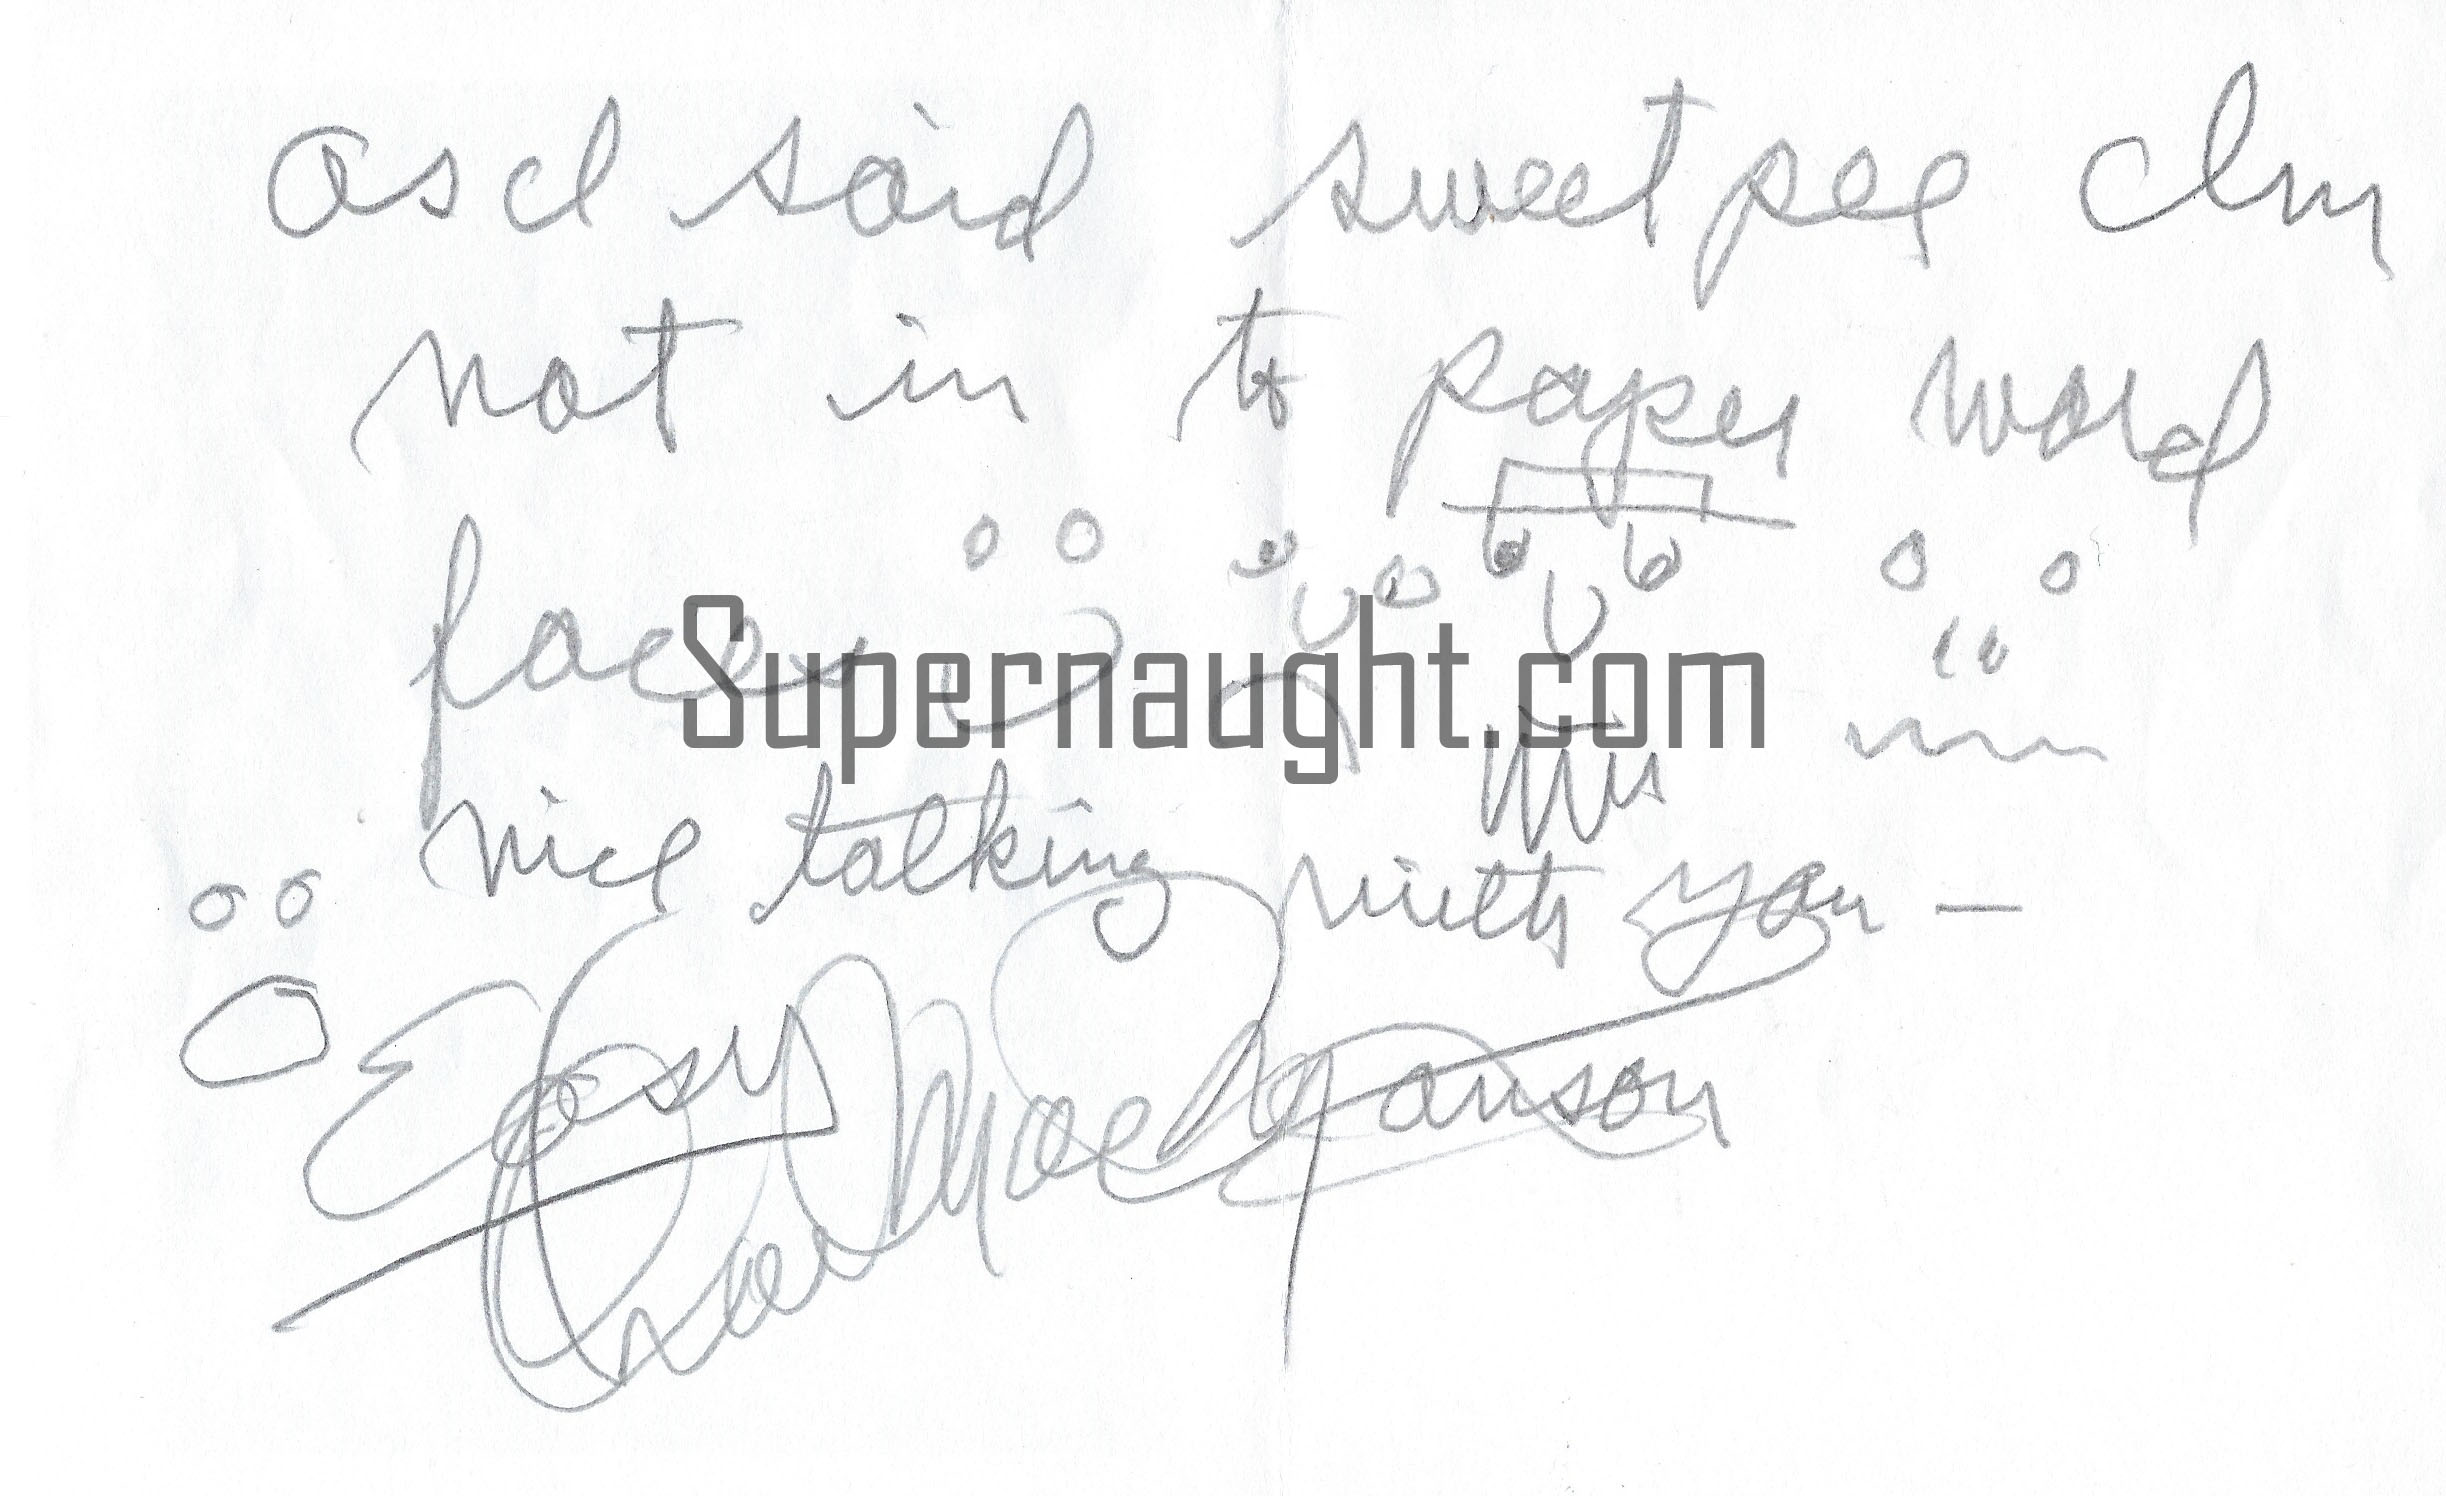 as I said sweet pea Im
not in to paper word
faces
Supernaught.com
nice talking with you —
Easy
Charles Manson